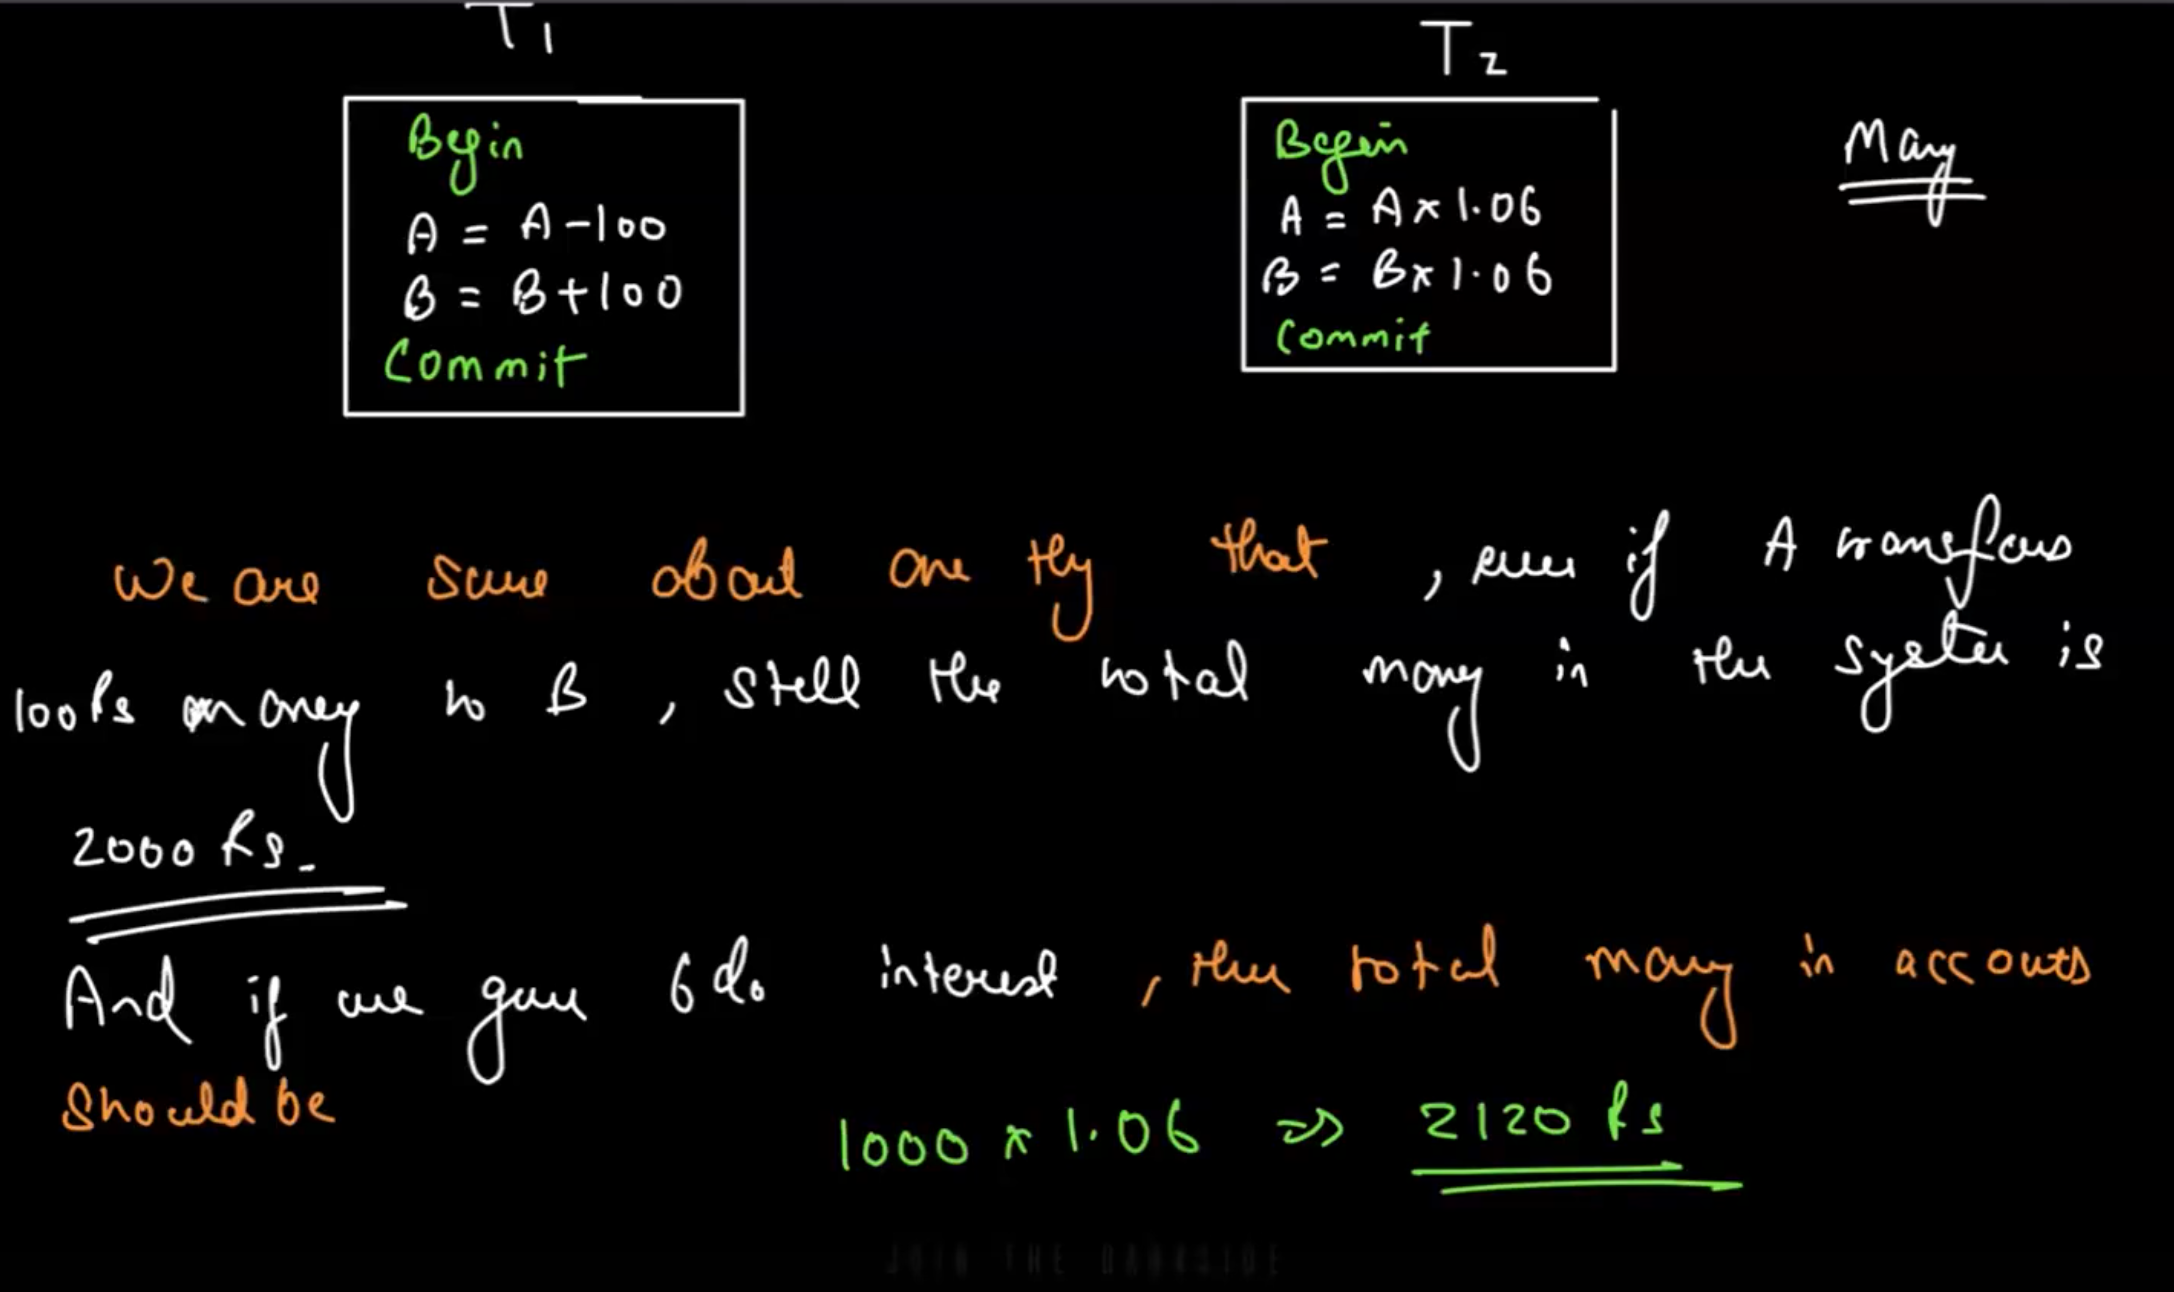 T1
T2
Begin
A = A - 100
B = B + 100
Commit
Begin
A = A x 1.06
B = B x 1.06
Commit
Many
We are sure about one thg that , even if A transfers
100Rs money to B , still the total money in the system is
2000 Rs.
And if we gave 6% interest , then total money in accounts
should be
1000 x 1.06 => 2120 Rs
JOIN THE DARKSIDE